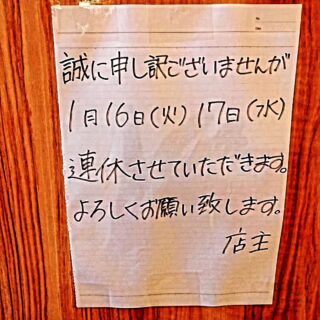 誠に申し訳ございませんが
1月16日(火)17日(水)
連休させていただきます。
よろしくお願い致します。
店主